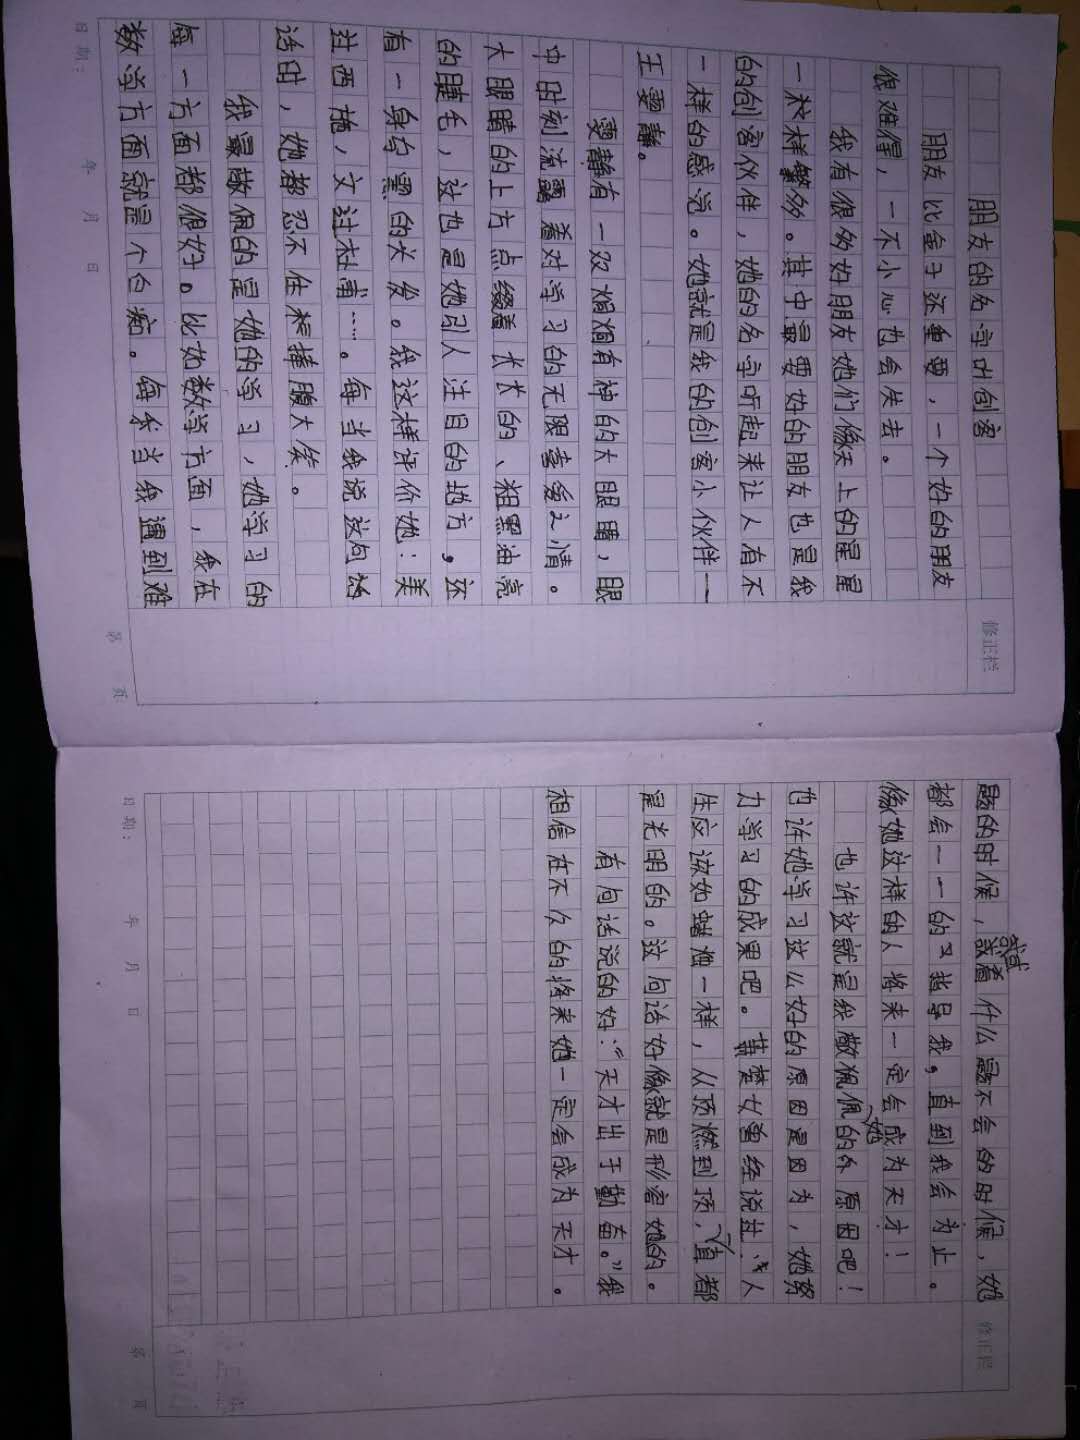 朋友的名字叫创客
朋友比金子还重要，一个好的朋友
很难得，一不小心也会失去。
我有很多好朋友她们像天上的星星
一样繁多。其中最要好的朋友也是我
的创客伙伴，她的名字听起来让人有不
一样的感觉。她就是我的创客小伙伴——
王雯静。
雯静有一双炯炯有神的大眼睛，眼
中时刻流露着对学习的无限喜爱之情。
大眼睛的上方点缀着长长的、粗黑油亮
的睫毛，这也是她引人注目的地方，还
有一身乌黑的头发。我这样评价她：美
过西施，文过杜甫……。每当我说这句话
话时，她都忍不住捧腹大笑。
我最敬佩的是她的学习，她学习的
每一方面都很好。比如数学方面，我在
数学方面就是个白痴。每我当我遇到难
日期： 年 月 日
第 页
修正栏
题的时候，或者什么题不会的时候，她
都会一一的指导我，直到我会为止。
像她这样的人将来一定会成为天才！
也许这就是我敬佩她的原因吧！
也许她学习这么好的原因是因为，她努
力学习的成果吧。萧楚女曾经说过：“人
生应该如蜡烛一样，从顶燃到顶，一直都
是光明的。这句话好像就是形容她的。
有句话说的好：“天才出于勤奋。”我
相信在不久的将来她一定会成为天才。
日期： 年 月 日
第 页
修正栏